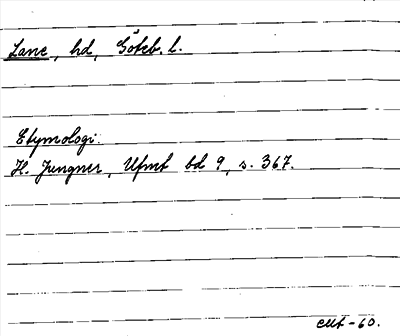 Lane, hd, Göteb. l.
Etymologi:
H. Jungner, Ufmt bd 9, s. 367.
-60.